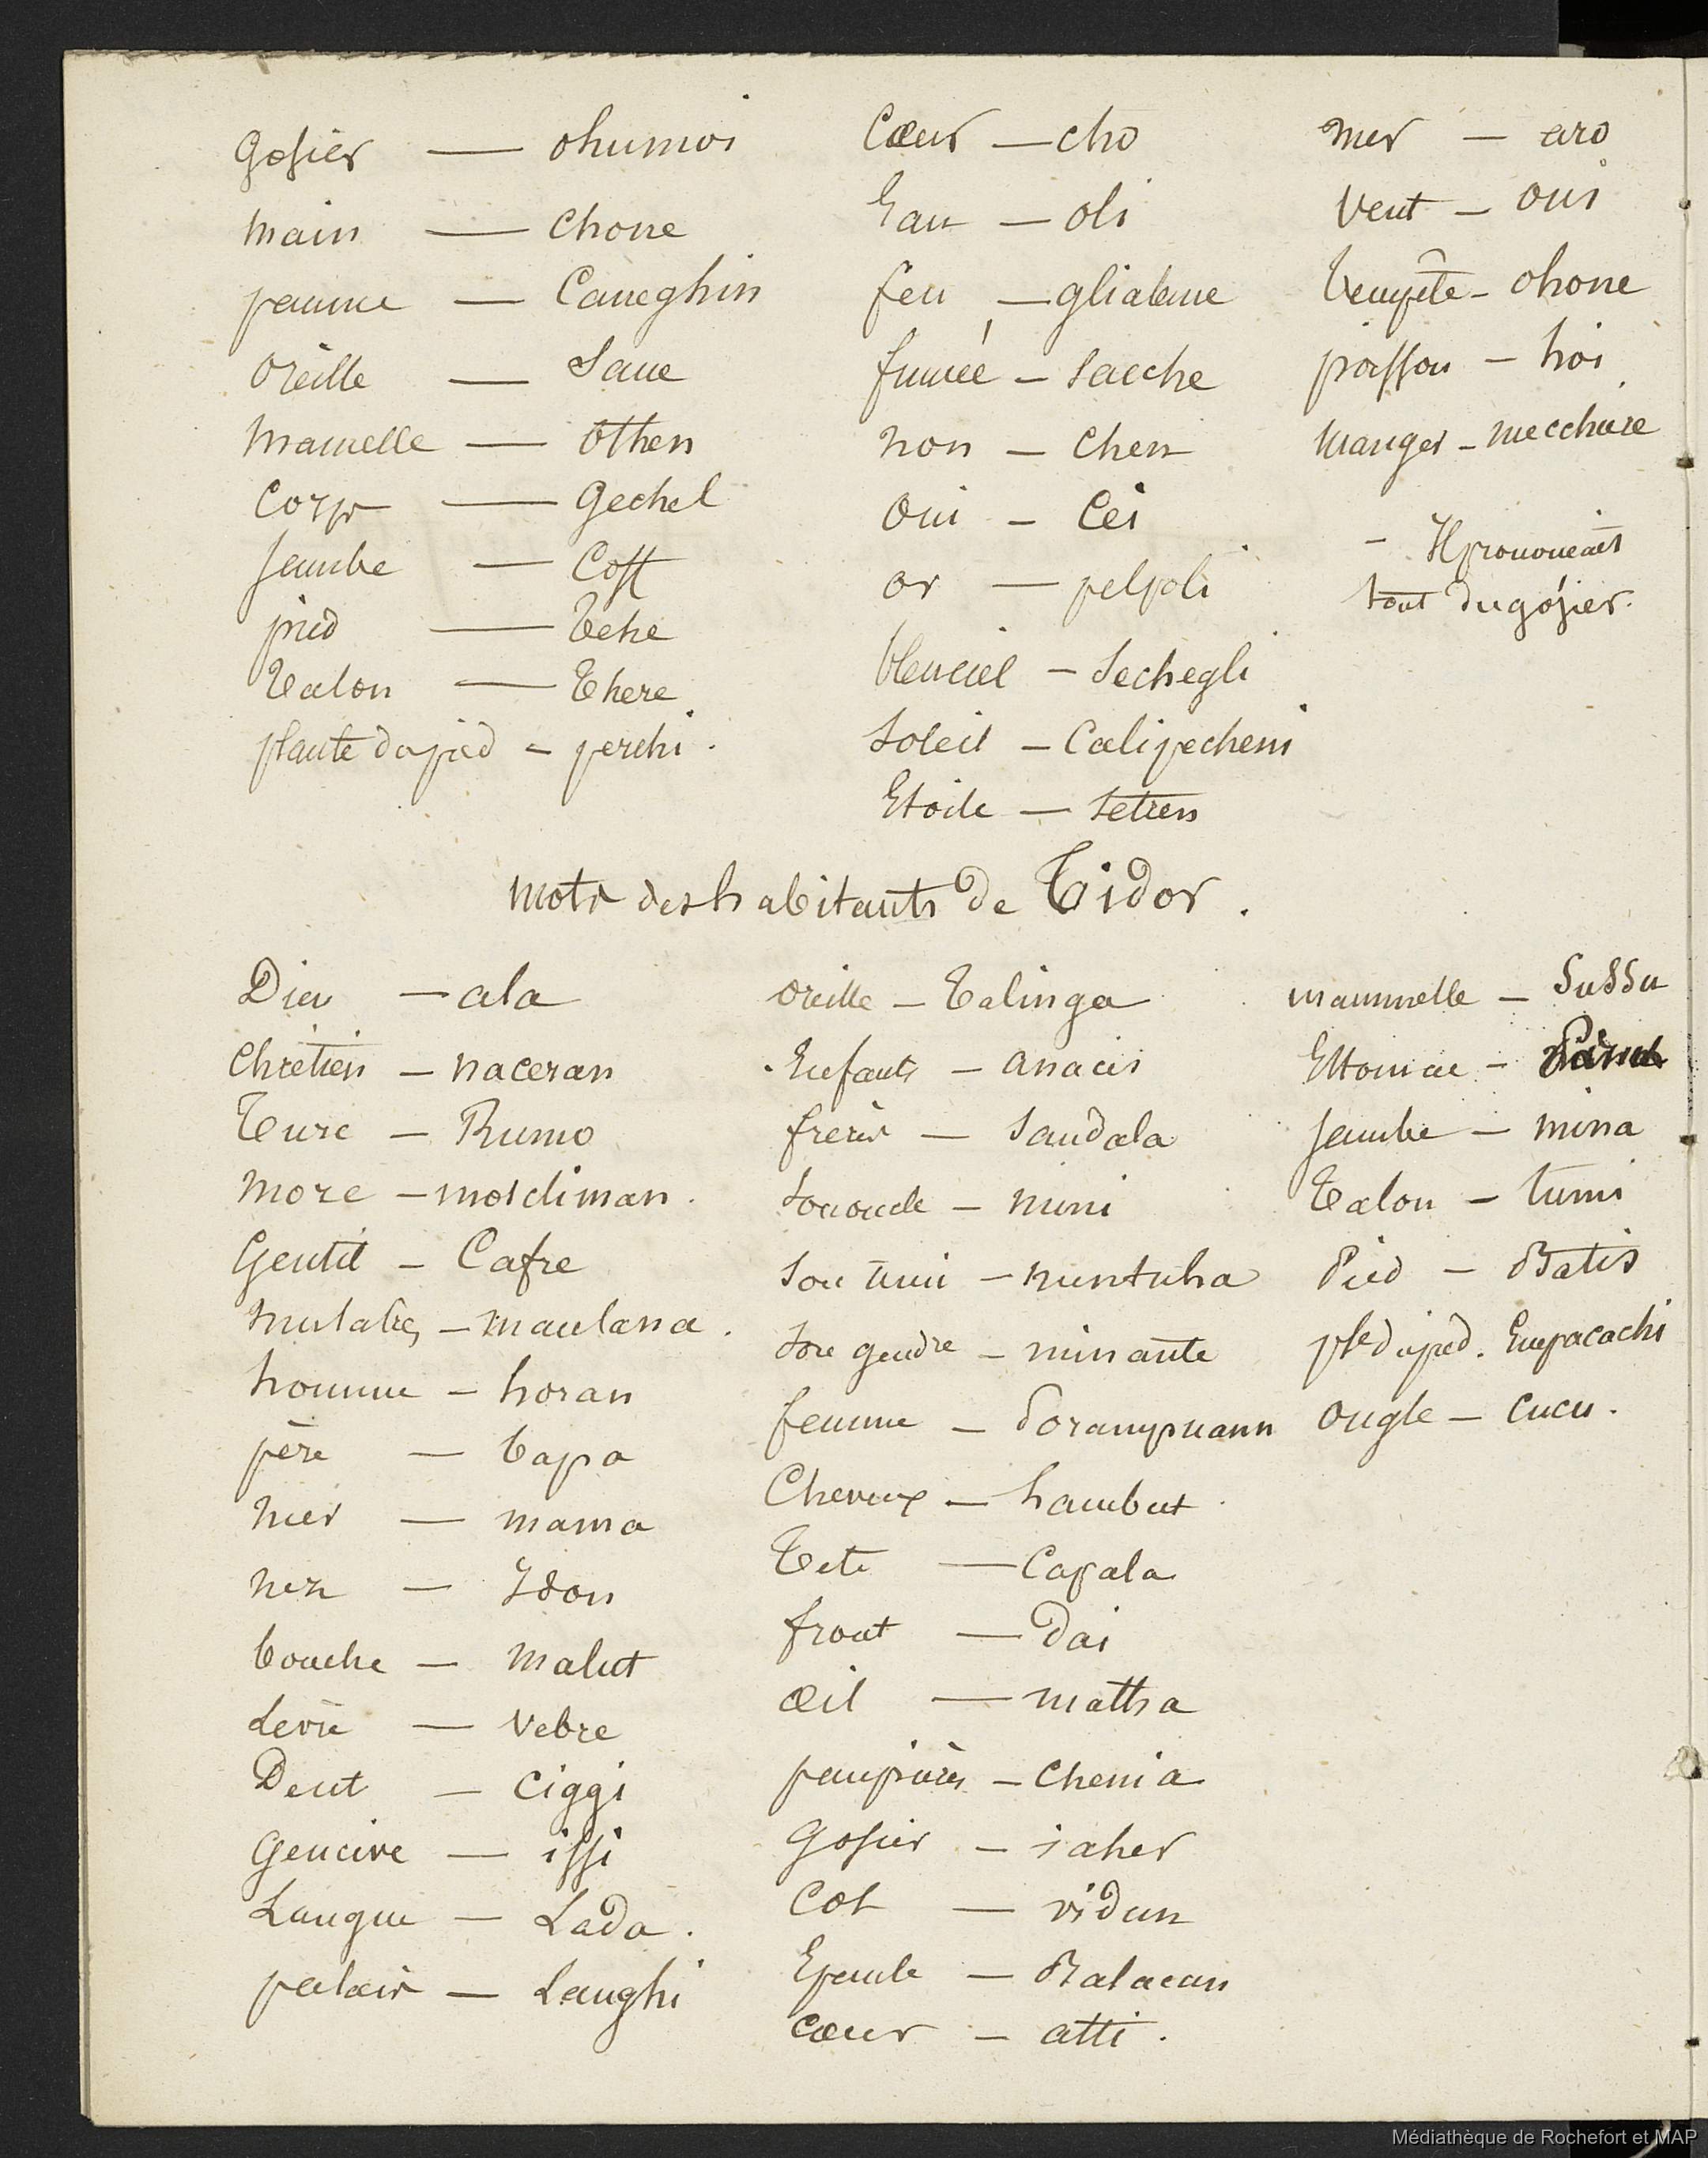 Gosier — ohumoi
main — Chone
paume — Caneghin
Oreille — Sane
Mamelle — Othen
Corps — Gechel
Jambe — Coss
pied — Tehe
Talon — There
plante du pied – perchi .
Cœur — cho
Eau — oli
feu — glialeme
fumée – Jacche
non – Chen
Oui – Cei
or — pelpoli
bleu ciel – Sechegli
Soleil – Calipecheni
Etoile — Setren
mer — aro
Vent – Oni
Tempête – Ohone
poisson – hoi
Manger – mecchiere
– Il prononcait
tout du gosier.
Mots des habitants de Tidor .
Dieu — ala
Chretien – naceran
Turc – Rumo
More – moscliman .
Gentil – Cafre
– maulana .
homme – horan
père — bapa
mer — mama
nez — Idon
bouche — Malut
Levre — Vebre
Dent — Ciggi
Gencive — issi
Langue — Lada .
palais — Langhi
Oreille – Talinga
Enfants – anacis
freres — Saudala
Son oncle – nini
Son ami – nuntuha
Son gendre – minante
femme – Porampuann
Cheveux – hambut
Tete — Capala
front — Dai
œil — mattha
paupieres – Chenia
Gosier – iaher
Col — vidun
Epaule — Balacan
Cœur – atti .
mammelle – Sussu
Estomac –
Jambe – mina
Talon – tumi
Pied – Batis
plte du pied . Empacachi
Ongle – Cucu .
Médiathèque de Rochefort et MAP